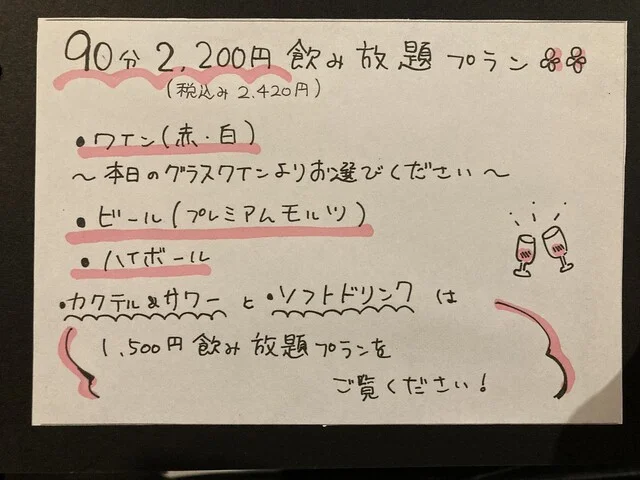 90分 2,200円 飲み放題プラン
(税込み 2.420円)
・ワイン(赤・白)
〜本日のグラスワインよりお選びください〜
・ビール(プレミアムモルツ)
・ハイボール
・カクテル&サワー と ・ソフトドリンク は
1,500円 飲み放題プランを
ご覧ください!